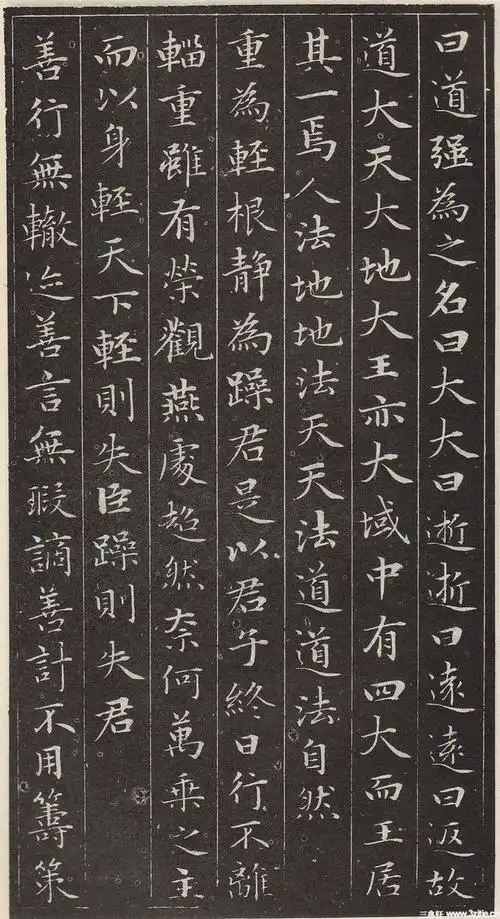 曰道强為之名曰大大曰逝逝曰遠遠曰返故
道大天大地大王亦大域中有四大而王居
其一焉人法地地法天天法道道法自然
重為輕根靜為躁君是以君子終日行不離
輜重雖有榮觀燕處超然奈何萬乘之主
而以身輕天下輕則失臣躁則失君
善行無轍迹善言無瑕謫善計不用籌策